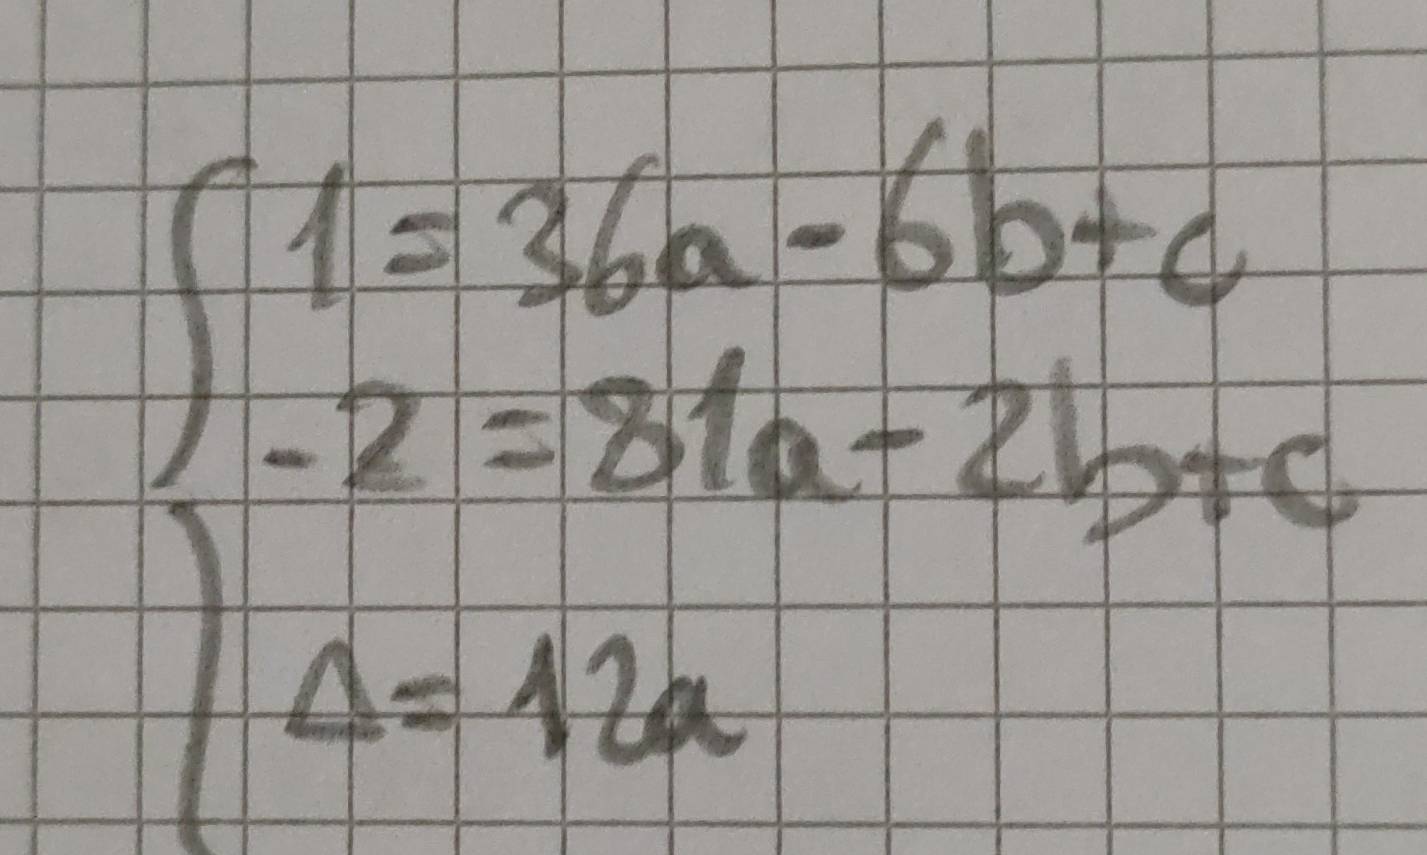 1 = 36a - 6b + c
-2 = 81a - 2b + c
Δ = 12a